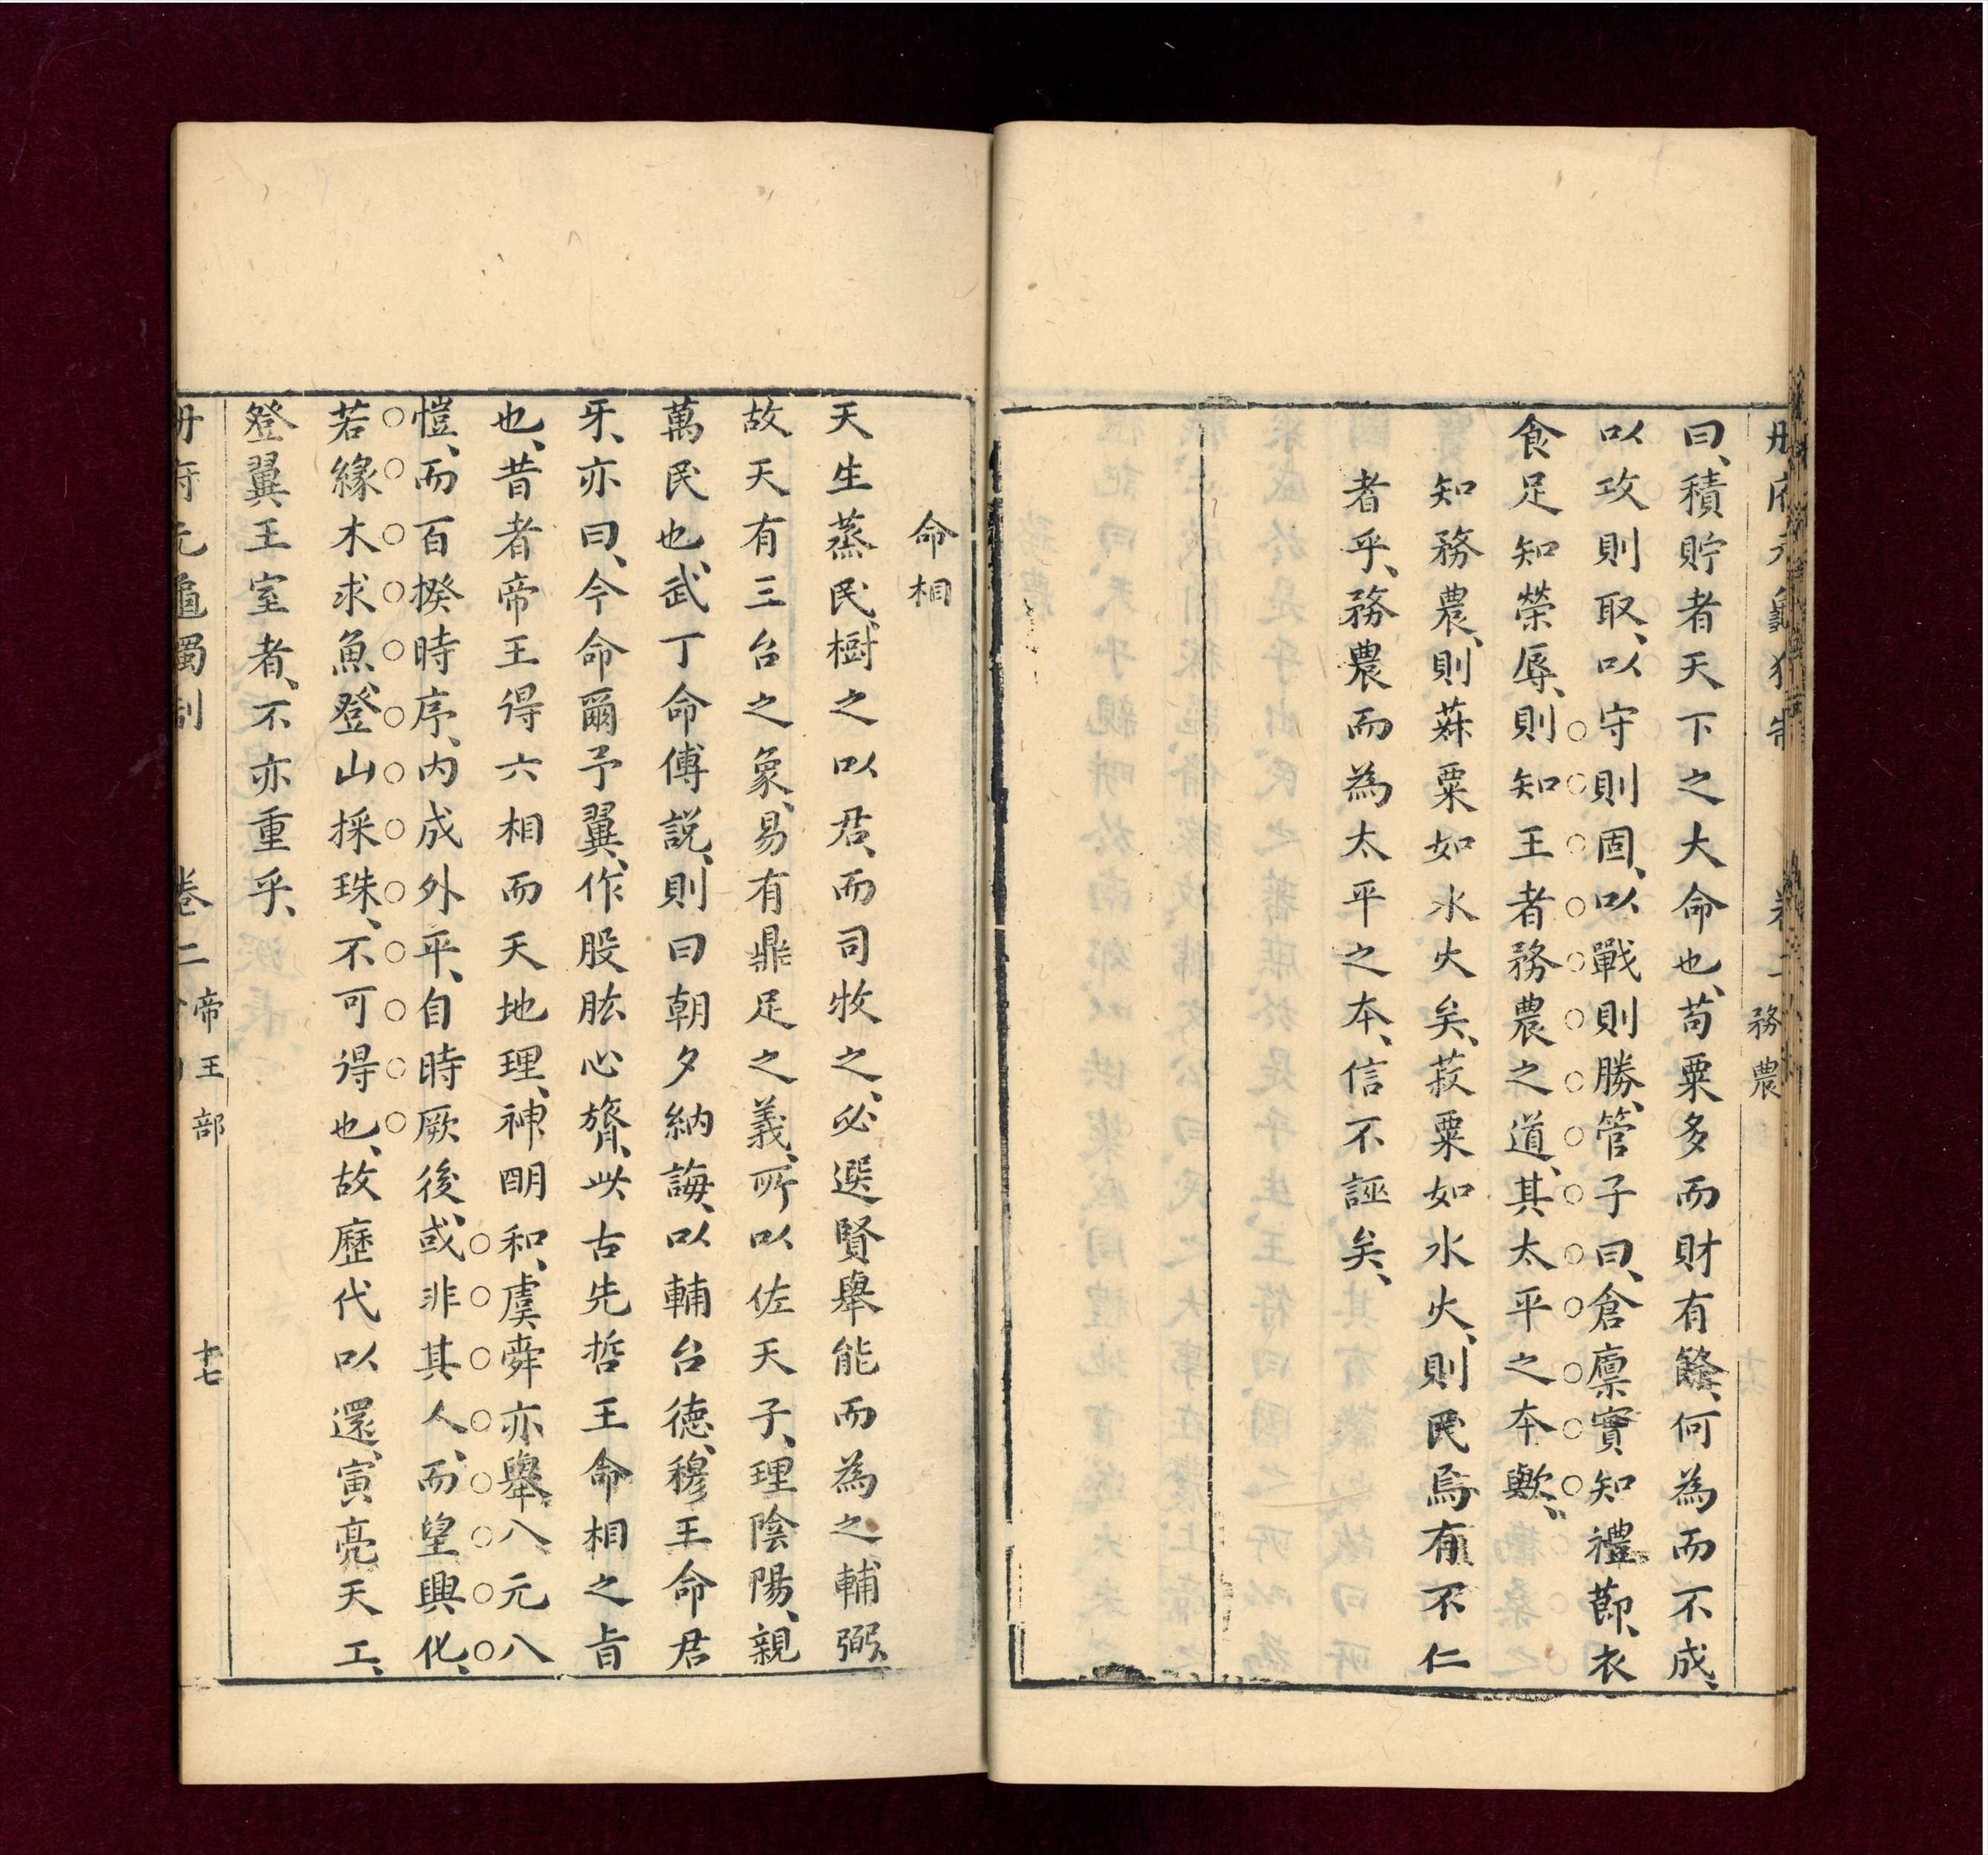 務農
曰、積貯者天下之大命也、苟粟多而財有餘、何為而不成、
以攻則取、以守則固、以戰則勝、管子曰、倉廩實知禮節、衣
食足知榮辱、則知王者務農之道、其太平之本歟、
知務農、則菽粟如水火矣、菽粟如水火、則民焉有不仁
者乎、務農而為太平之本、信不誣矣、
命相
天生蒸民、樹之以君、而司牧之、必選賢舉能而為之輔弼、
故天有三台之象、易有鼎足之義、所以佐天子、理陰陽、親
萬民也、武丁命傅説、則曰朝夕納誨、以輔台德、穆王命君
牙、亦曰、今命爾予翼、作股肱心膂、此古先哲王命相之旨
也、昔者帝王得六相而天地理、神明和、虞舜亦舉八元八
愷、而百揆時序、內成外平、自時厥後、或非其人、而望興化、
若緣木求魚、登山採珠、不可得也、故歷代以還、寅亮天工、
登翼王室者、不亦重乎、
冊府元龜獨制 卷二 帝王部 十七